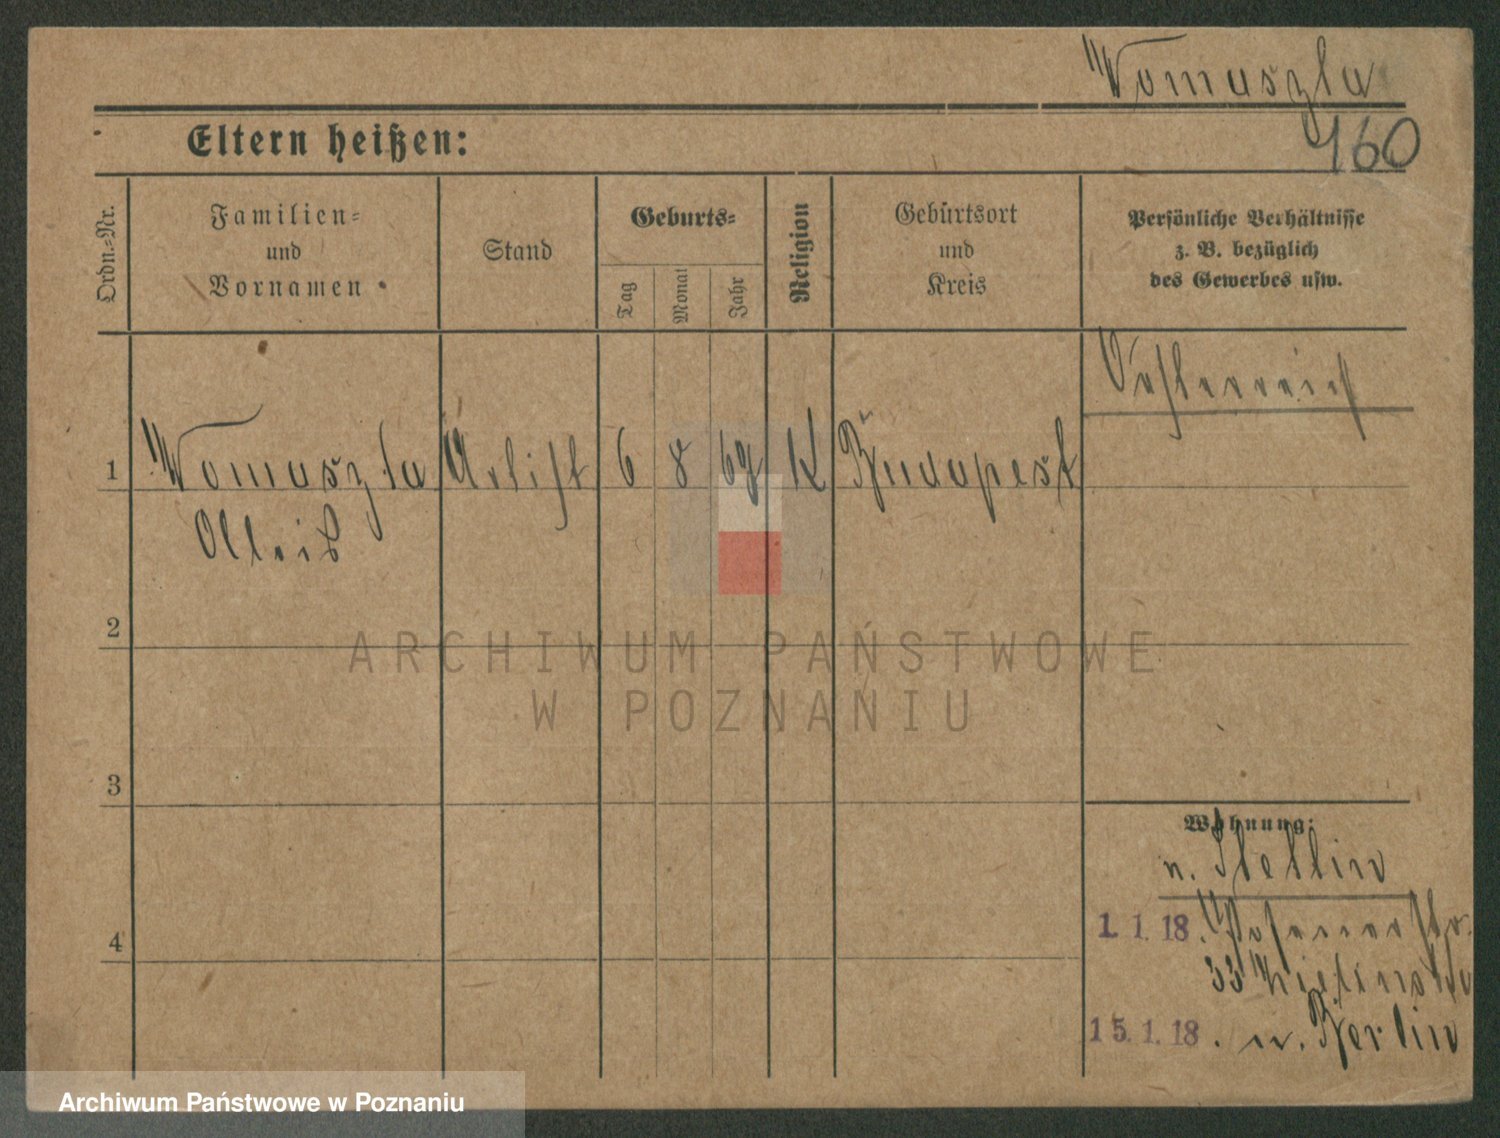 Womaszla
160
Eltern heißen:
Ordn.-Nr.
Familien-
und
Vornamen
Stand
Geburts-
Tag
Monat
Jahr
Religion
Geburtsort
und
Kreis
Persönliche Verhältnisse
z. B. bezüglich
des Gewerbes usw.
Oesterreich
1 Womaszla Artist 6 8 69 K Budapest
Alois
2
3
4
Wohnung:
n. Stettin
1. 1. 18. Posenerstr.
33
15. 1. 18. n. Berlin
ARCHIWUM PAŃSTWOWE
W POZNANIU
Archiwum Państwowe w Poznaniu